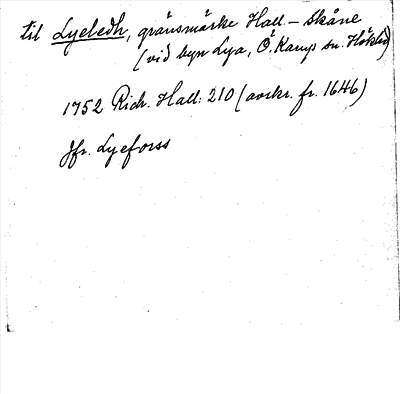 til Lyeledh, gränsmärke Hall. – Skåne
(vid byn Lya, Ö. Karup sn. Höks hd)
1752 Rich. Hall: 210 (avskr. fr. 1646)
Jfr. Lyeforss